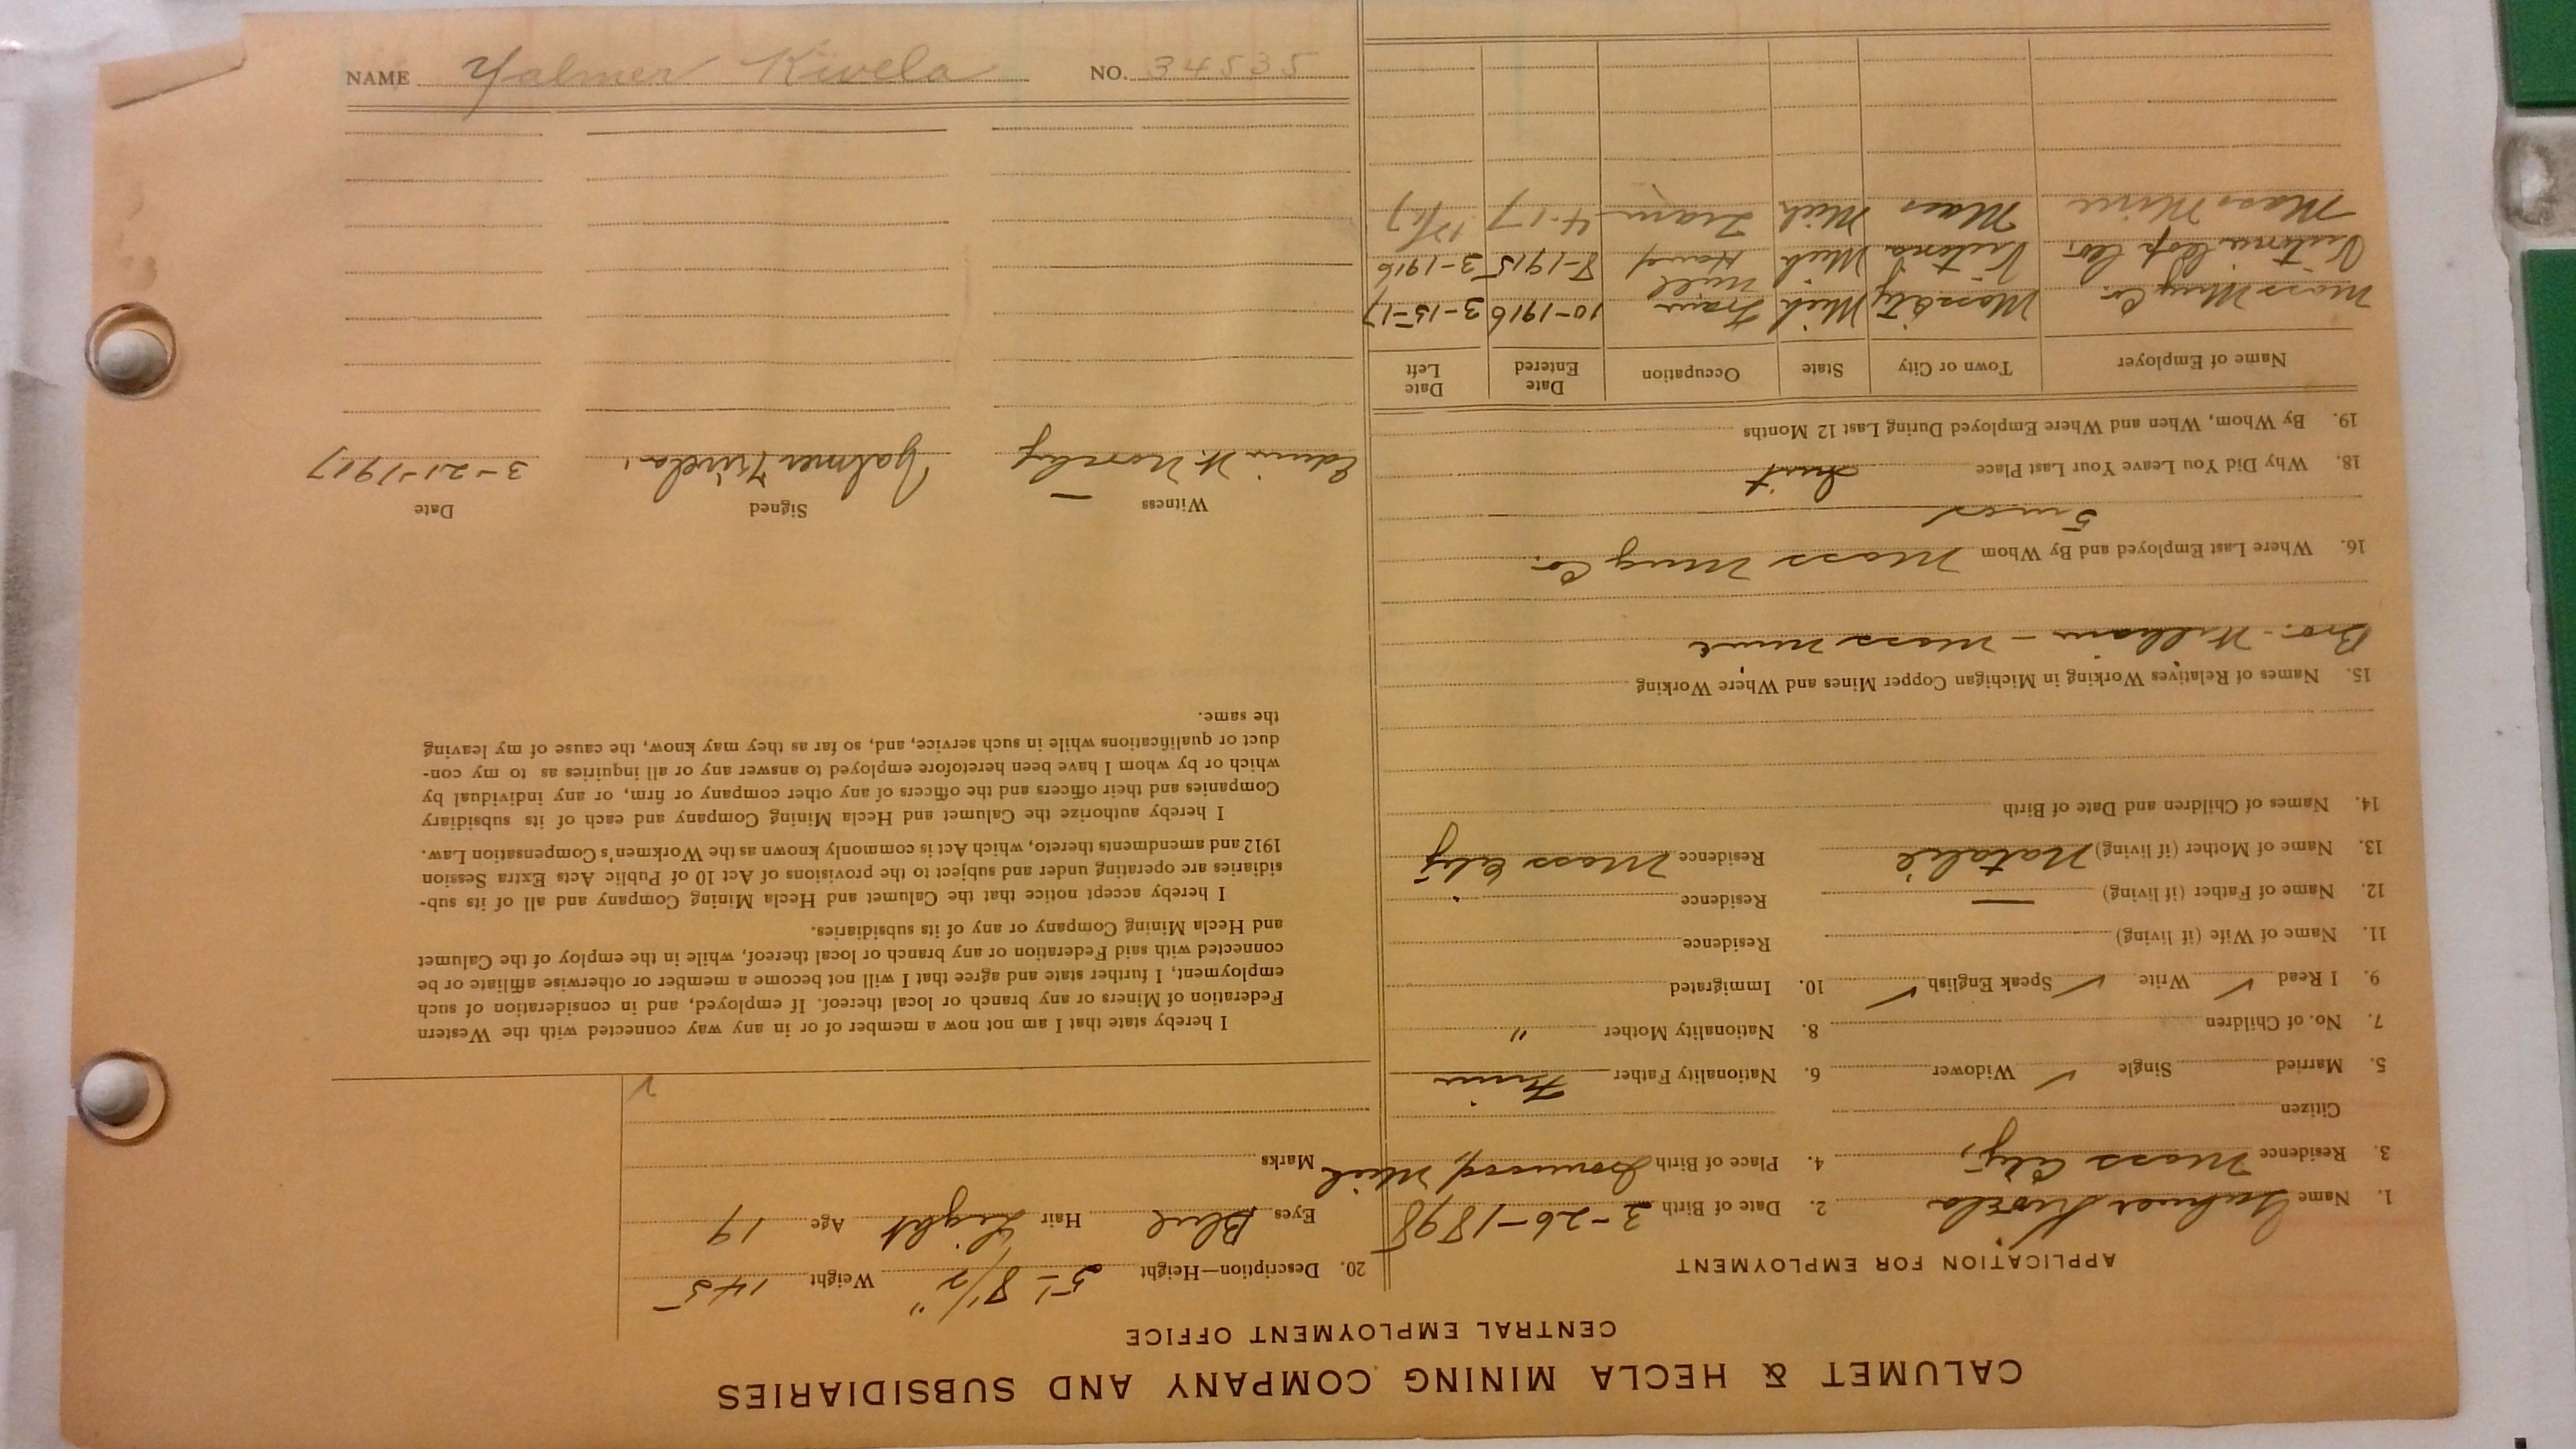 CALUMET & HECLA MINING COMPANY AND SUBSIDIARIES
CENTRAL EMPLOYMENT OFFICE
APPLICATION FOR EMPLOYMENT
1. Name Yalmer Kivela 2. Date of Birth 3-26-1898
3. Residence Mass City, 4. Place of Birth Ironwood, Mich
Citizen
5. Married Single ✓ Widower 6. Nationality Father Finn
7. No. of Children 8. Nationality Mother "
9. I Read ✓ Write ✓ Speak English ✓ 10. Immigrated
11. Name of Wife (if living) Residence
12. Name of Father (if living) — Residence
13. Name of Mother (if living) Natalie Residence Mass City
14. Names of Children and Date of Birth
15. Names of Relatives Working in Michigan Copper Mines and Where Working
Bro. - William - Mass mine
16. Where Last Employed and By Whom Mass Mng Co.
5 mos
18. Why Did You Leave Your Last Place Quit
19. By Whom, When and Where Employed During Last 12 Months
Name of Employer Town or City State Occupation Date Entered Date Left
Mass Mng Co. Mass City Mich Tram 10-1916 3-15-17
Victoria Cop Co. Victoria Mich Mill Hand 8-1915 3-1916
Mass Mine Mass Mich Tram 4-17
20. Description—Height 5-8 1/2" Weight 145
Eyes Blue Hair Light Age 19
Marks
I hereby state that I am not now a member of or in any way connected with the Western
Federation of Miners or any branch or local thereof. If employed, and in consideration of such
employment, I further state and agree that I will not become a member or otherwise affiliate or be
connected with said Federation or any branch or local thereof, while in the employ of the Calumet
and Hecla Mining Company or any of its subsidiaries.
I hereby accept notice that the Calumet and Hecla Mining Company and all of its sub-
sidiaries are operating under and subject to the provisions of Act 10 of Public Acts Extra Session
1912 and amendments thereto, which Act is commonly known as the Workmen's Compensation Law.
I hereby authorize the Calumet and Hecla Mining Company and each of its subsidiary
Companies and their officers and the officers of any other company or firm, or any individual by
which or by whom I have been heretofore employed to answer any or all inquiries as to my con-
duct or qualifications while in such service, and, so far as they may know, the cause of my leaving
the same.
Witness Signed Date
Edwin W. Yalmer Kivela. 3-21-1917
NAME Yalmer Kivela NO. 34535